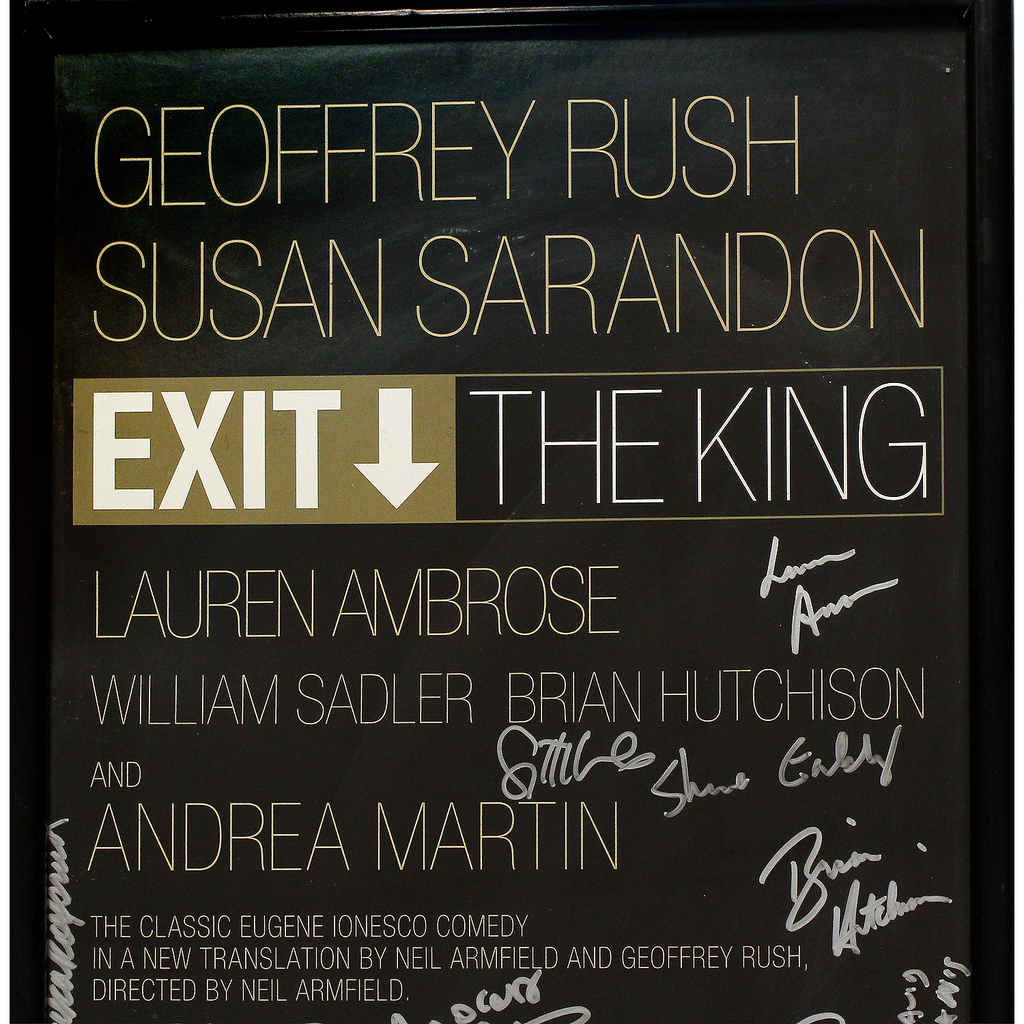 GEOFFREY RUSH
SUSAN SARANDON
EXIT ↓ THE KING
LAUREN AMBROSE
WILLIAM SADLER BRIAN HUTCHISON
AND
ANDREA MARTIN
Brian
THE CLASSIC EUGENE IONESCO COMEDY
IN A NEW TRANSLATION BY NEIL ARMFIELD AND GEOFFREY RUSH,
DIRECTED BY NEIL ARMFIELD.